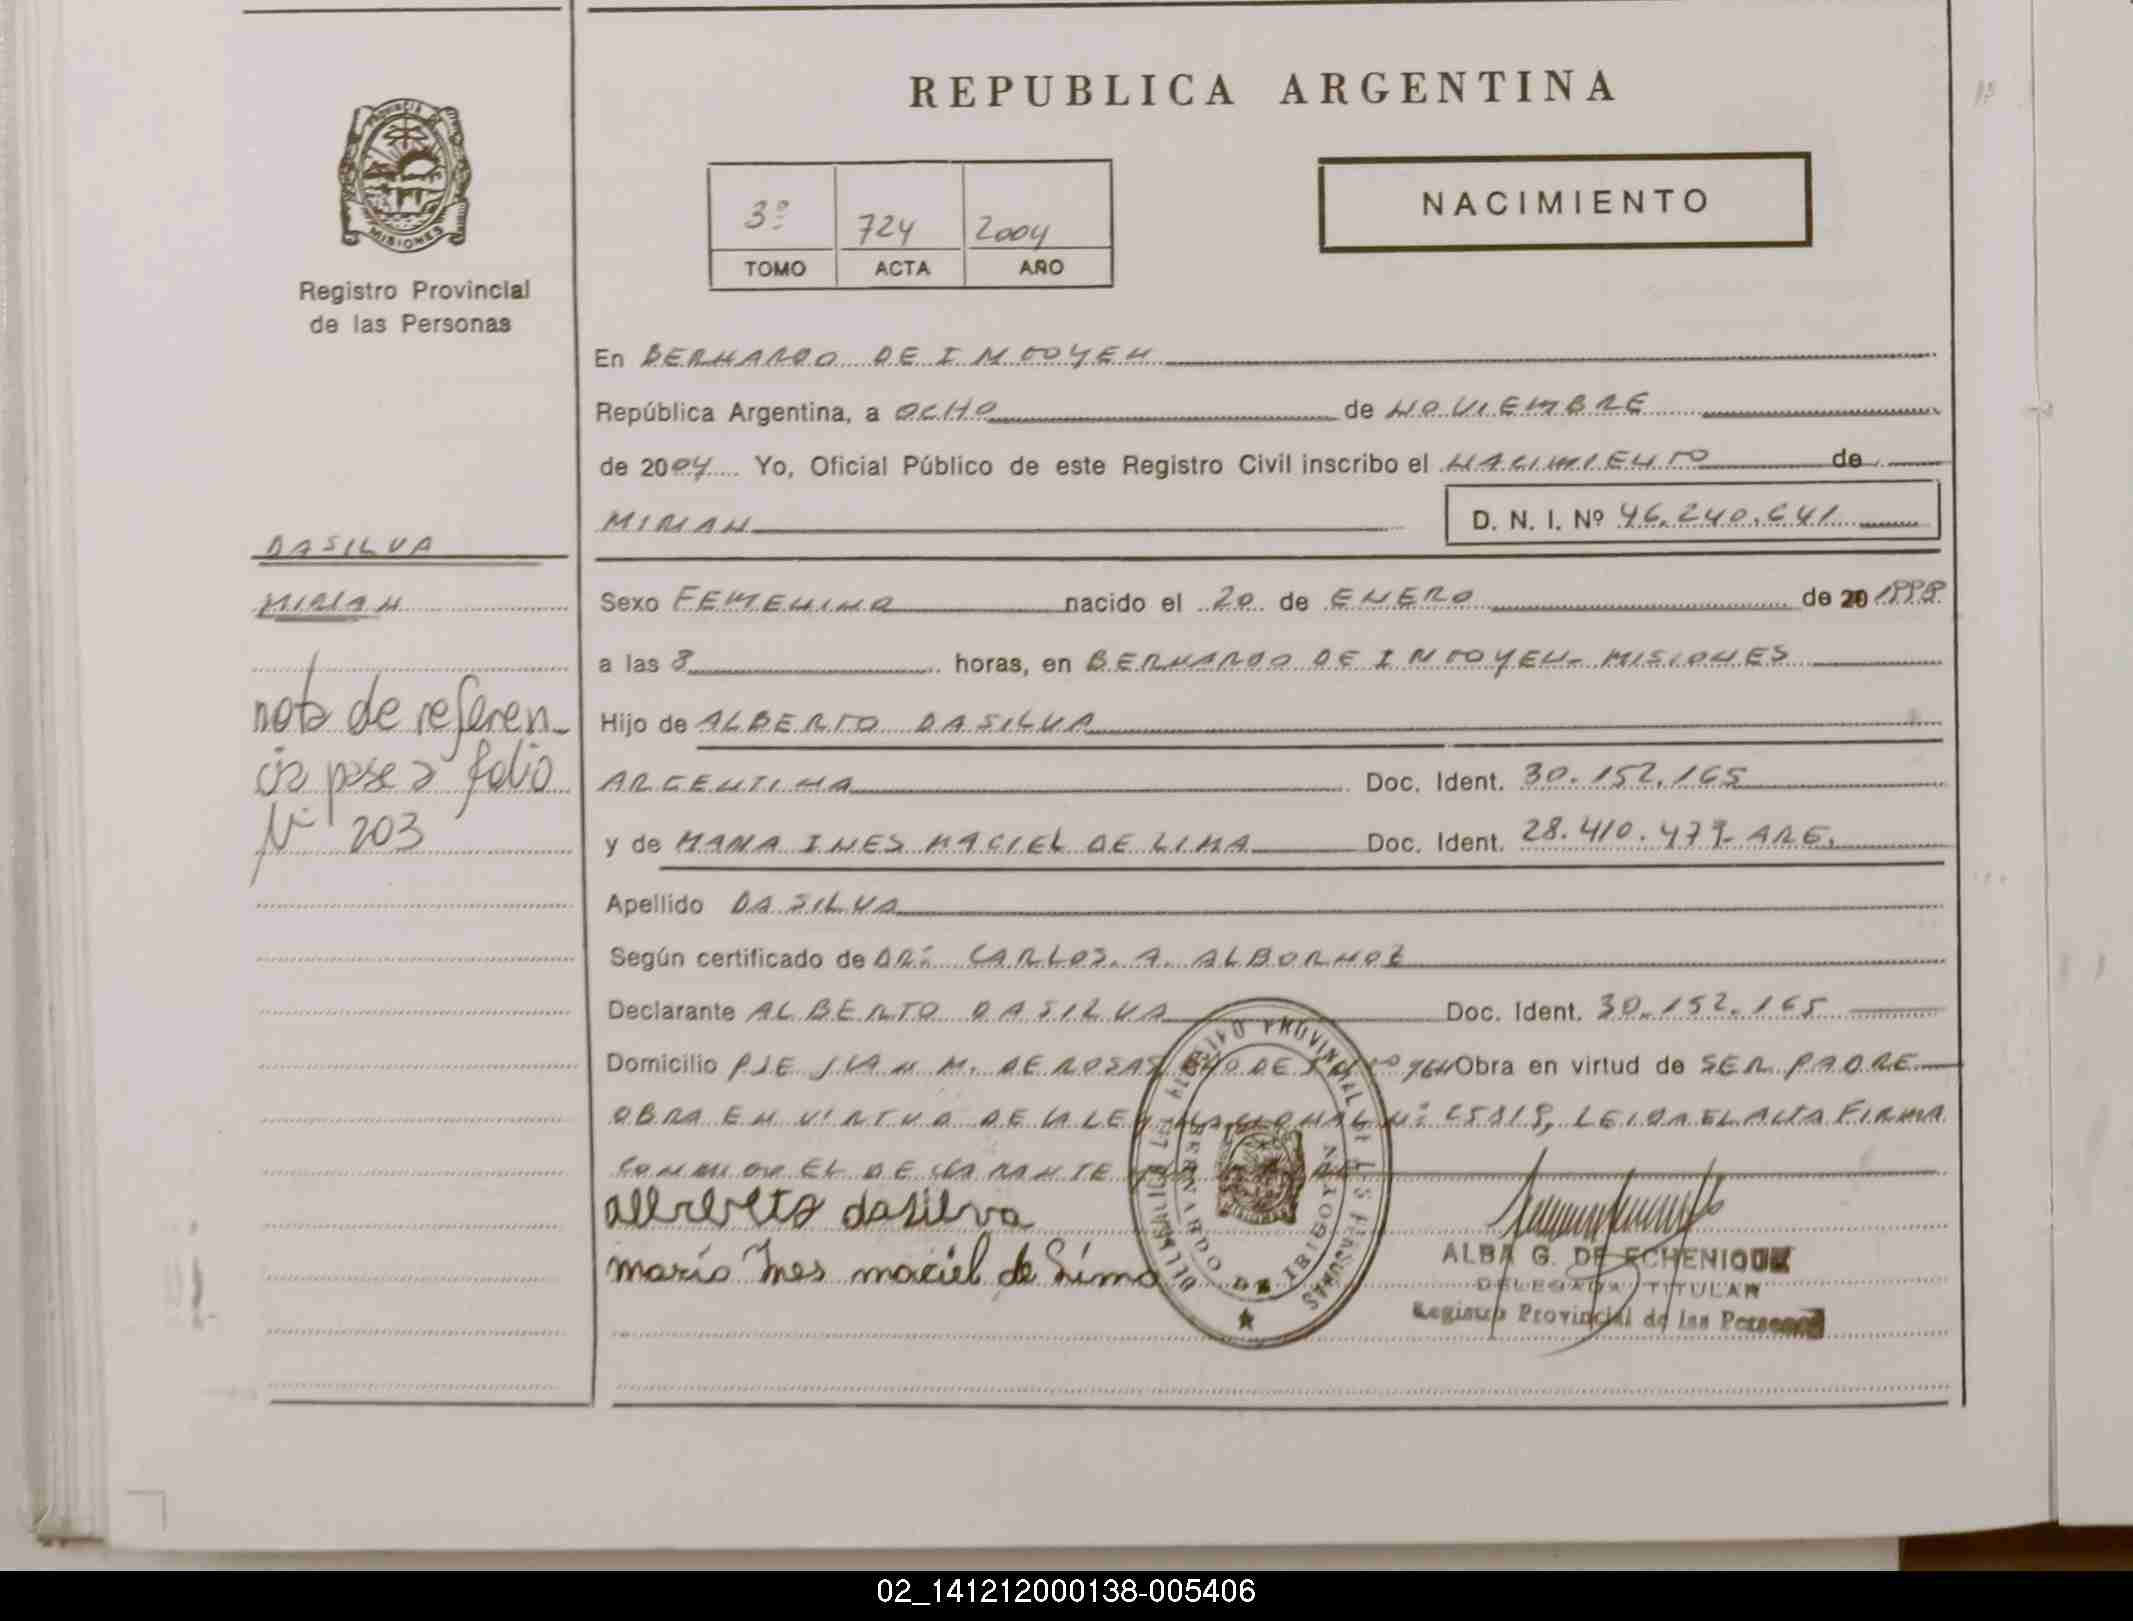 REPUBLICA ARGENTINA
PROVINCIA DE MISIONES
Registro Provincial
de las Personas
3º 724 2004
TOMO ACTA AÑO
NACIMIENTO
En BERNARDO DE IRIGOYEN
República Argentina, a OCHO de NOVIEMBRE
de 2004 Yo, Oficial Público de este Registro Civil inscribo el NACIMIENTO de
MIRIAN D. N. I. Nº 46.240.641
DASILVA
MIRIAN
Sexo FEMENINO nacido el 20 de ENERO de 20 1998
a las 8 horas, en BERNARDO DE IRIGOYEN - MISIONES
nota de referen-
cia pase a folio
Nº 203
Hijo de ALBERTO DASILVA
ARGENTINA Doc. Ident. 30.152.165
y de MARIA INES MACIEL DE LIMA Doc. Ident. 28.410.479 ARG.
Apellido DASILVA
Según certificado de DR. CARLOS A. ALBORNOZ
Declarante ALBERTO DASILVA Doc. Ident. 30.152.165
Domicilio PJE JUAN M. DE ROSAS Obra en virtud de SER PADRE
OBRA EN VIRTUD DE LA LEY NACIONAL Nº 25819, LEIDA EL ACTA FIRMA
CONMIGO EL DECLARANTE
allberto dasilva
maria Ines maciel de Lima
DELEGACION REGISTRO PROVINCIAL DE LAS PERSONAS
BERNARDO DE IRIGOYEN
ALBA G. DE ECHENIQUE
DELEGADA TITULAR
Registro Provincial de las Personas
02_141212000138-005406